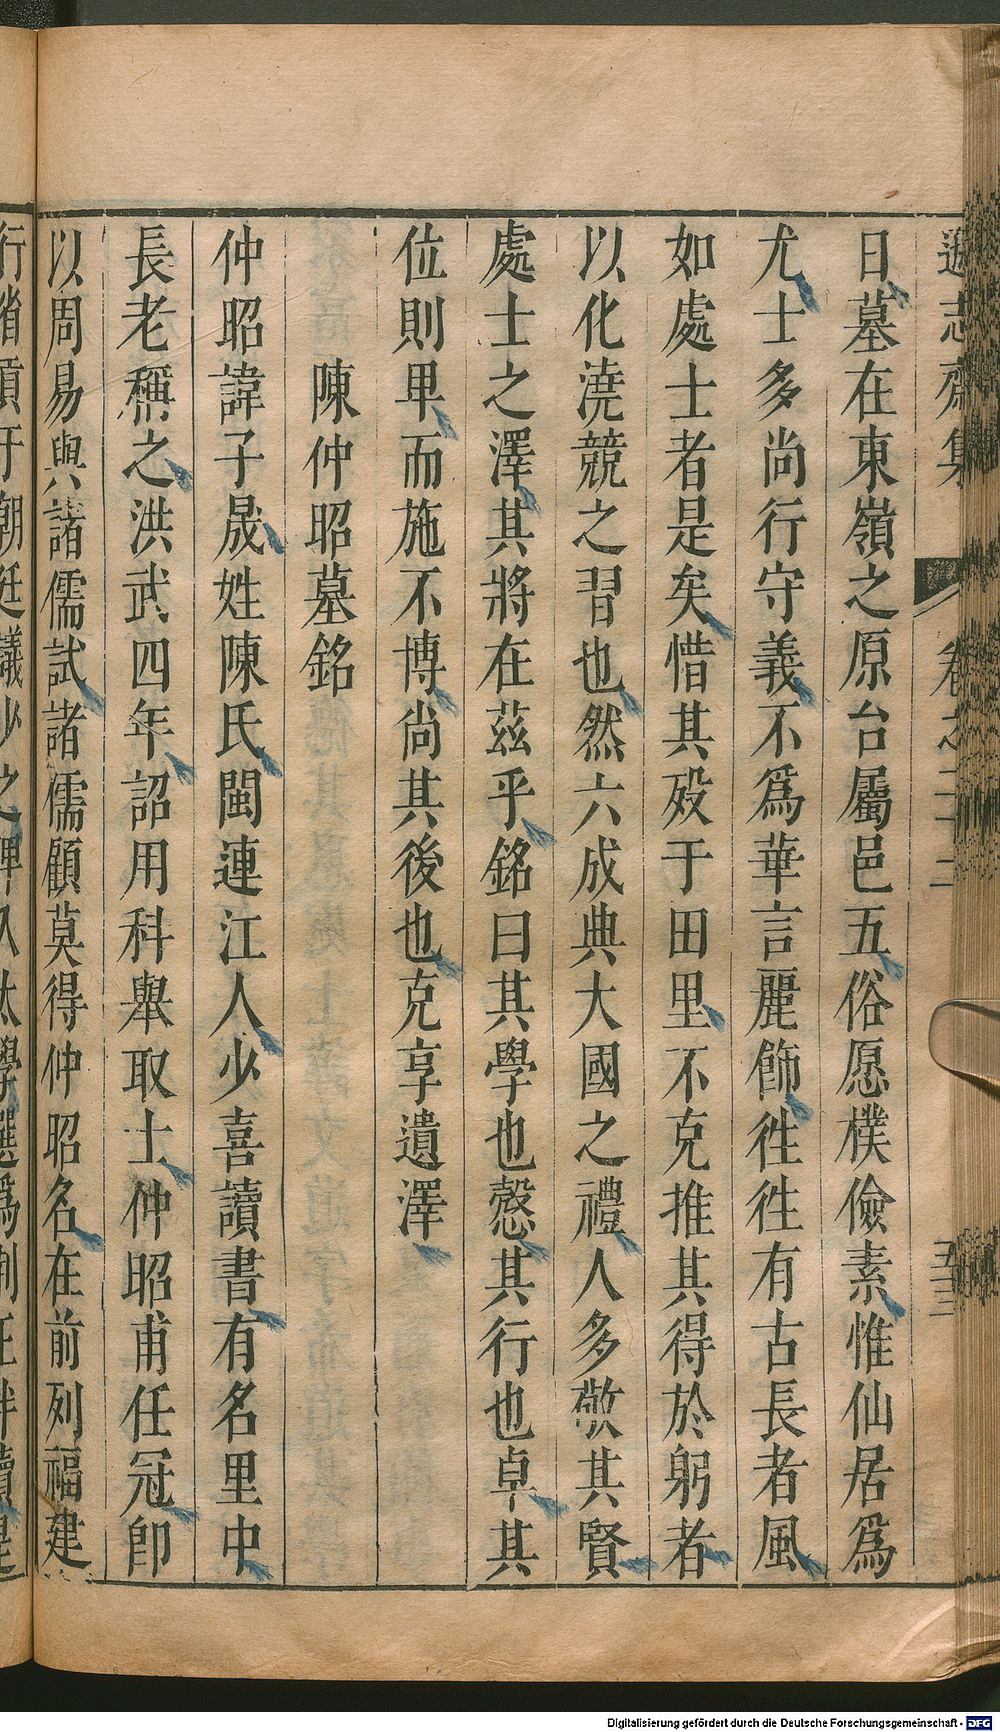 遜志齋集 卷之二十二 五十三
日墓在東嶺之原台屬邑五俗愿樸儉素惟仙居爲
尤士多尚行守義不爲華言麗飾徃徃有古長者風
如處士者是矣惜其歿于田里不克推其得於躬者
以化澆競之習也然六成典大國之禮人多敬其賢
處士之澤其將在茲乎銘曰其學也慤其行也卓其
位則卑而施不博尚其後也克享遺澤
陳仲昭墓銘
仲昭諱子晟姓陳氏閩連江人少喜讀書有名里中
長老稱之洪武四年詔用科舉取士仲昭甫任冠卽
以周易與諸儒試諸儒顧莫得仲昭名在前列福建
行省貢于朝廷議少之俾入太學選爲
Digitalisierung gefördert durch die Deutsche Forschungsgemeinschaft - DFG